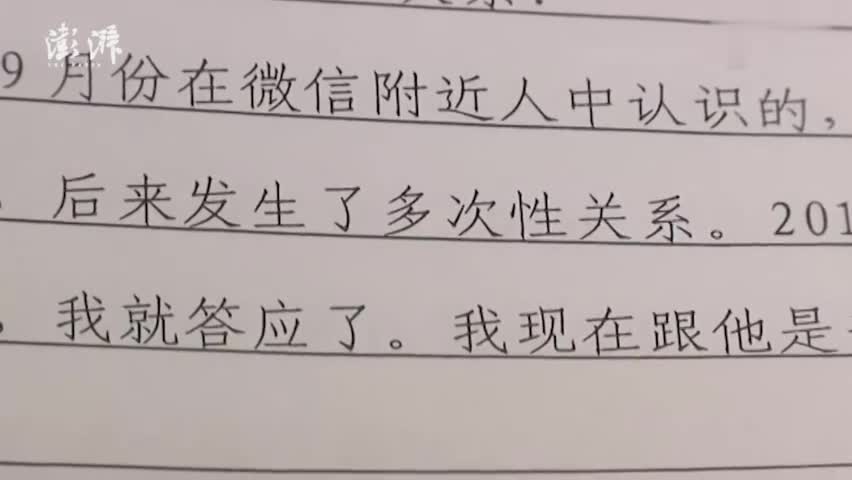 澎湃
9月份在微信附近人中认识的，
后来发生了多次性关系。201
。我就答应了。我现在跟他是